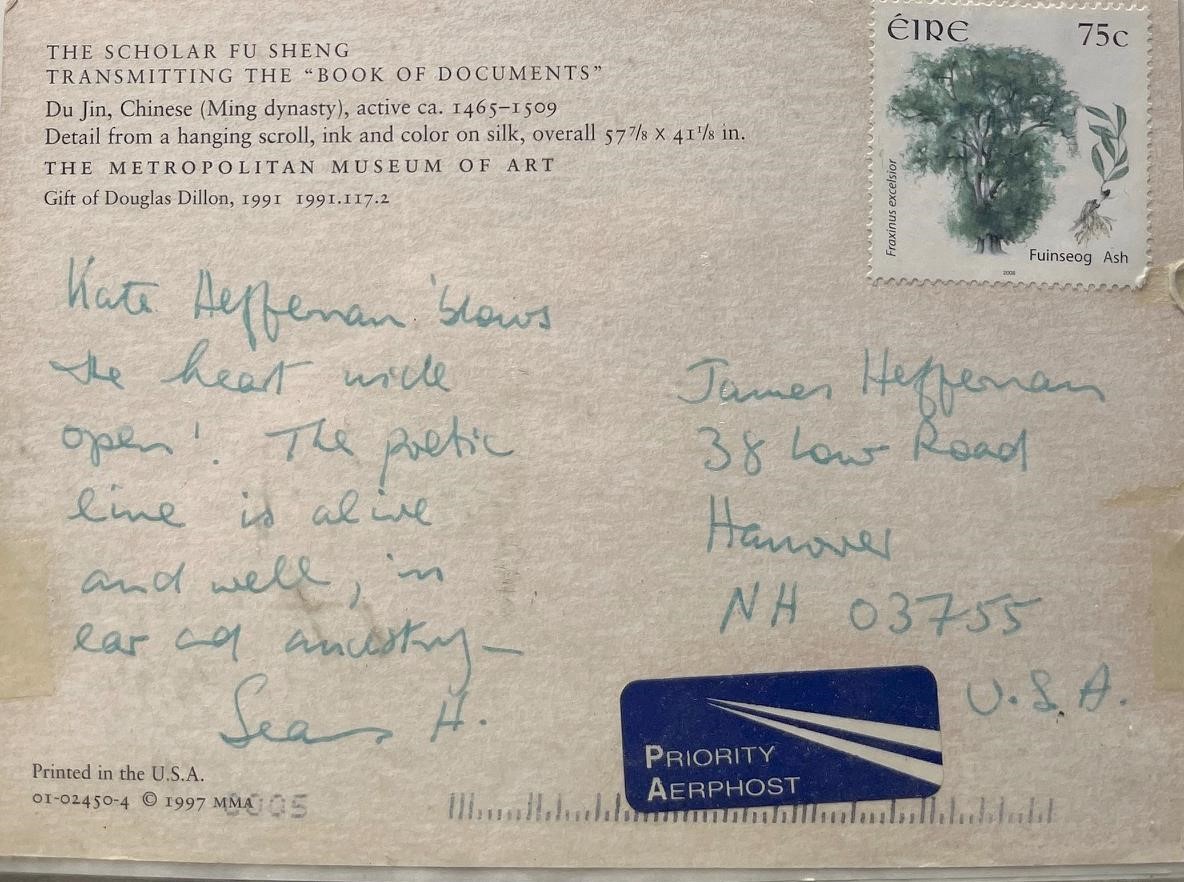 THE SCHOLAR FU SHENG
TRANSMITTING THE “BOOK OF DOCUMENTS”
Du Jin, Chinese (Ming dynasty), active ca. 1465–1509
Detail from a hanging scroll, ink and color on silk, overall 57 7/8 x 41 1/8 in.
THE METROPOLITAN MUSEUM OF ART
Gift of Douglas Dillon, 1991 1991.117.2
ÉIRE 75c
Fraxinus excelsior
Fuinseog Ash
2008
Kate Heffernan 'blows
the heart wide
open'. The poetic
line is alive
and well, in
ear and ancestry—
Seamus H.
James Heffernan
38 Low Road
Hanover
NH 03755
U.S.A.
PRIORITY
AERPHOST
Printed in the U.S.A.
01-02450-4 © 1997 MMA
0005